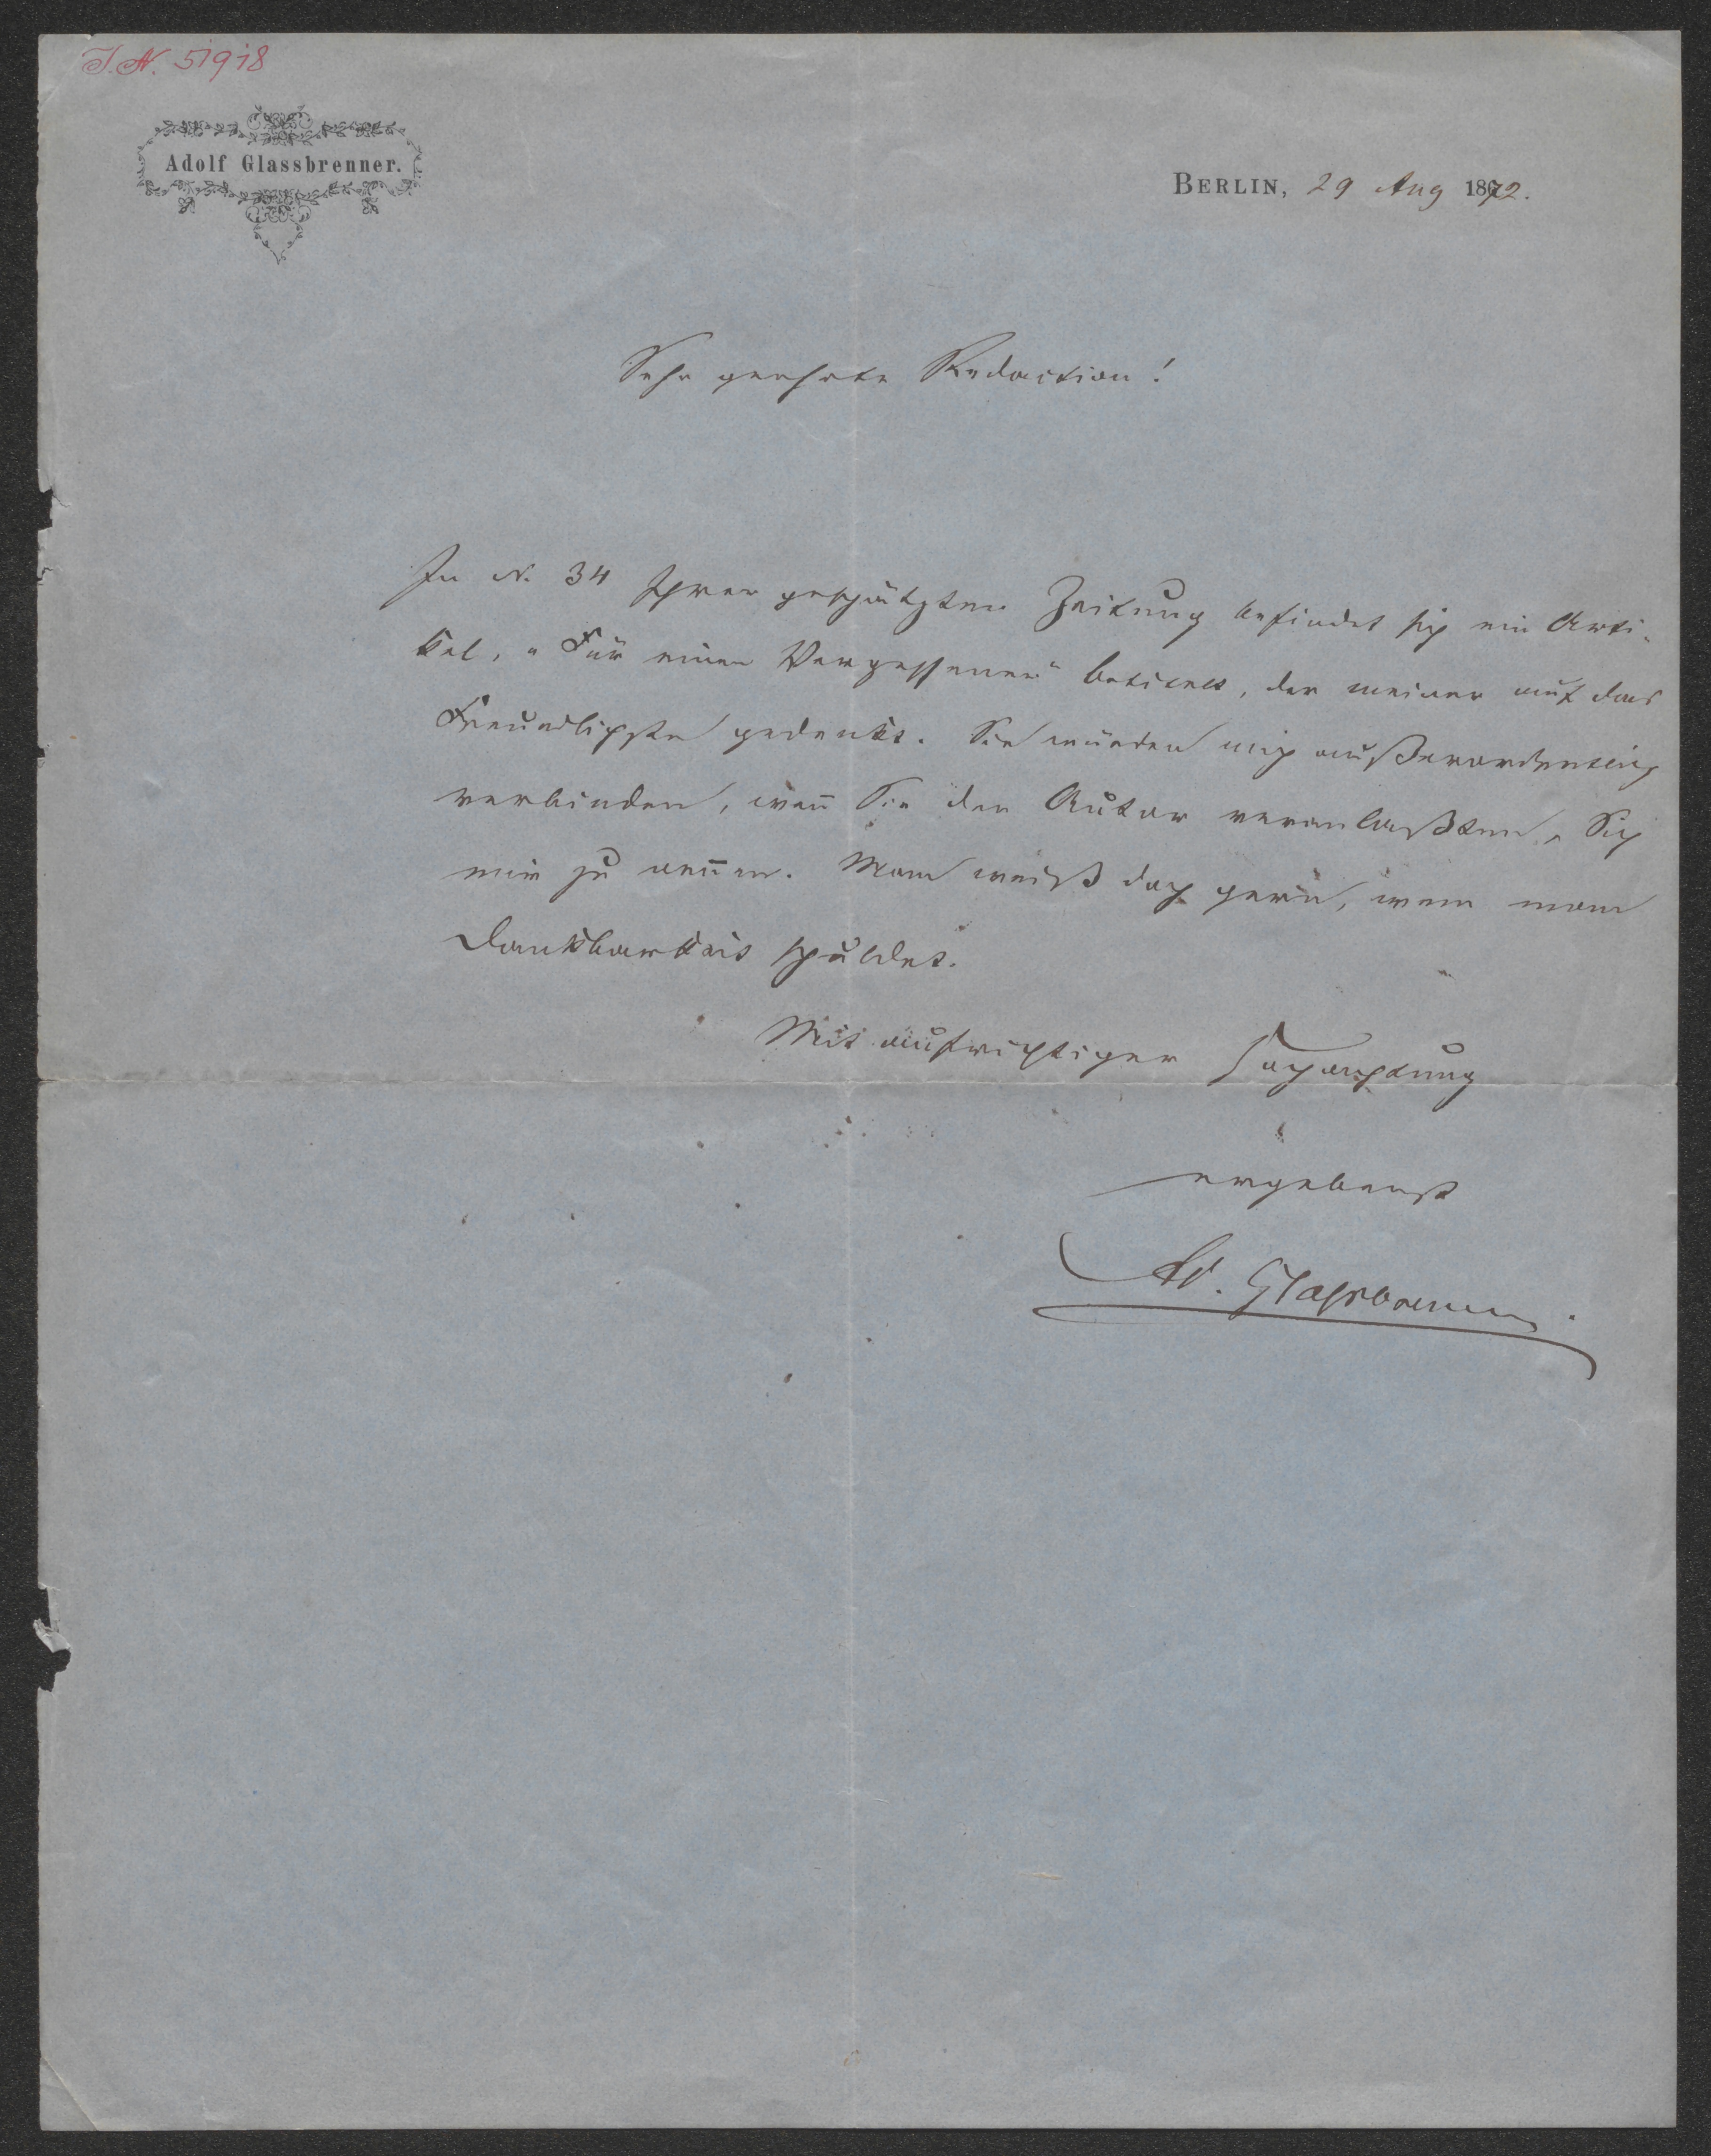 I.N. 51918
Adolf Glassbrenner.
BERLIN, 29 Aug 1872.
Sehr geehrte Redaction!
In N. 34 Ihrer geschätzten Zeitung befindet sich ein Arti-
kel, „Für einen Vergessenen" betitelt, der meiner auf das
Freundlichste gedenkt. Sie würden mich außerordentlich
verbinden, wen̄ Sie den Autor veranlaßten, Sich
mir zu nen̄en. Man weiß doch gern, wem man
Dankbarkeit schuldet.
Mit aufrichtiger Hochachtung
ergebenst
Ad. Glassbrenner.